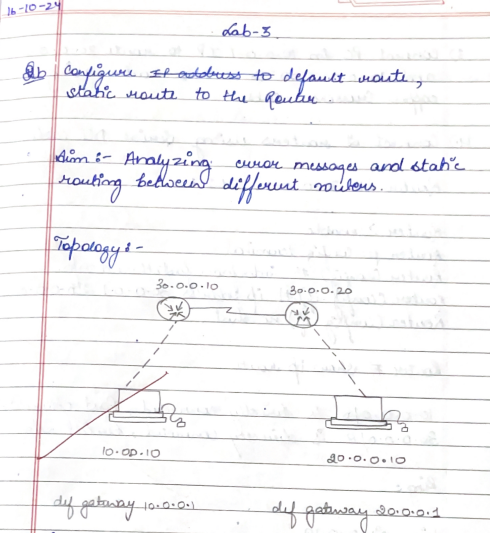 16-10-24
Lab-3
Qb configure IP address to default route,
static route to the Router.
Aim:- Analyzing error messages and static
routing between different routers.
Topology:-
30.0.0.10 30.0.0.20
10.00.10 20.0.0.10
def gateway 10.0.0.1 def gateway 20.0.0.1